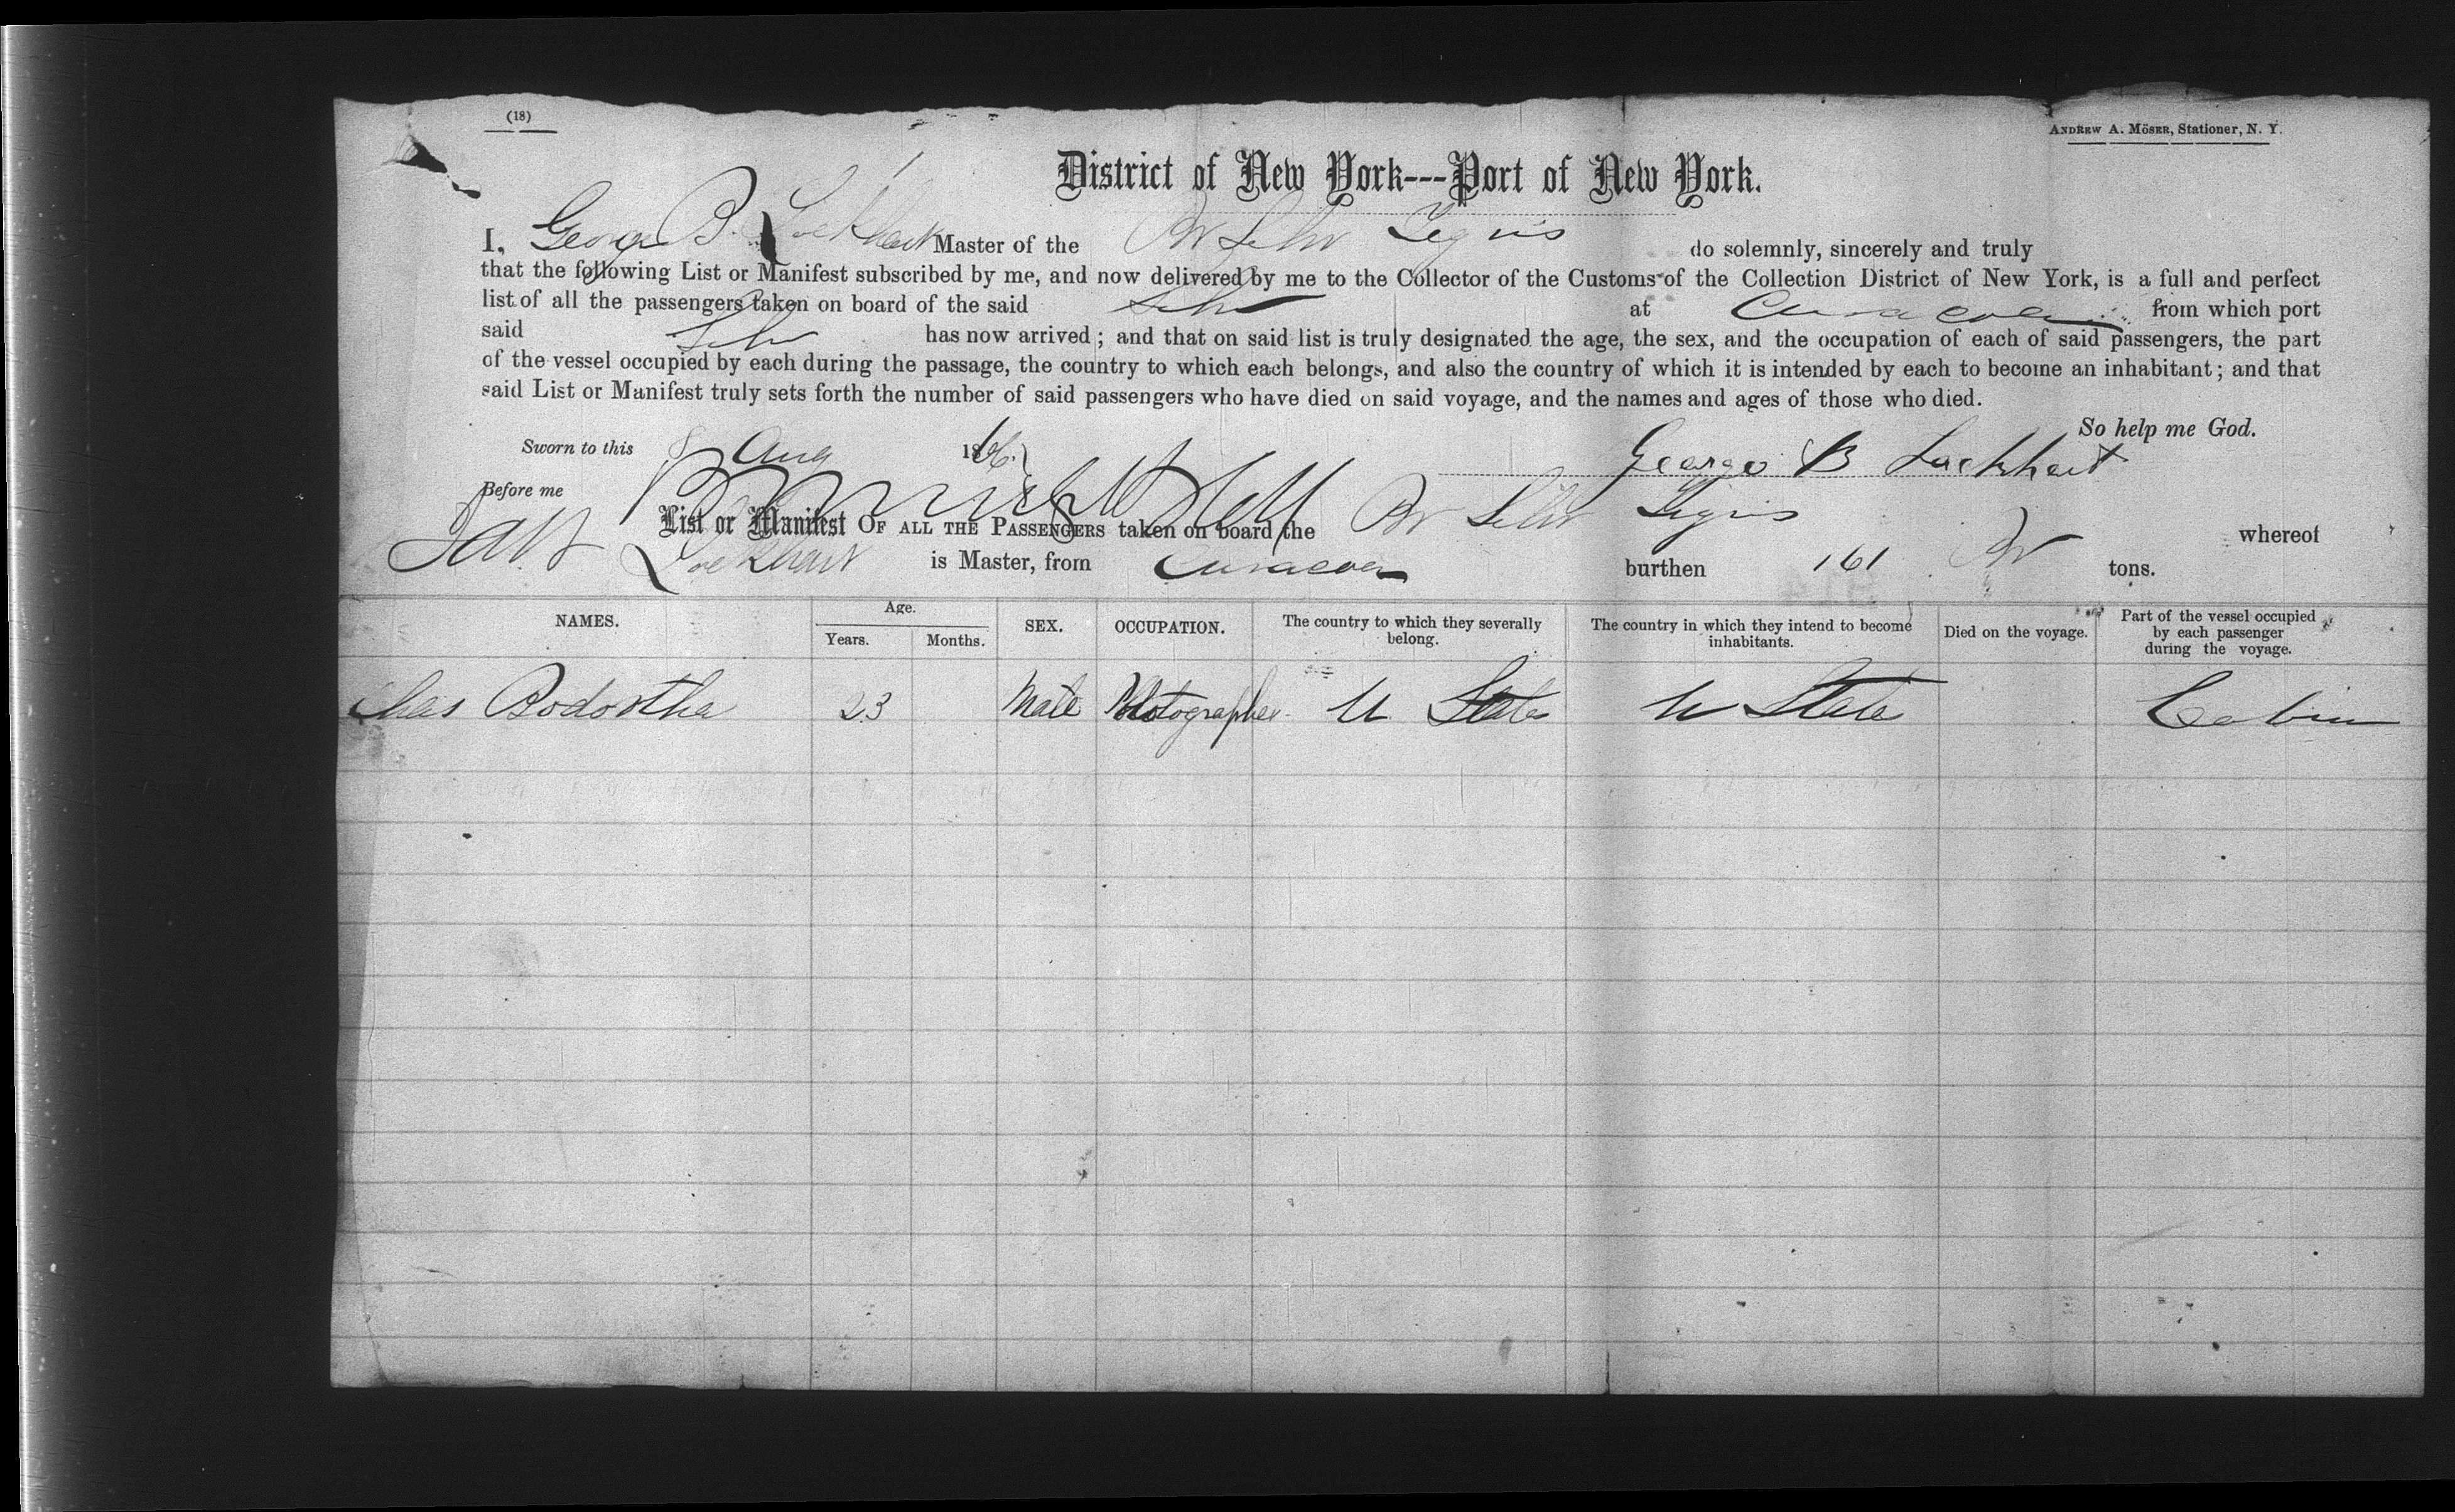 (18)
ANDREW A. MÖSER, Stationer, N. Y.
District of New York---Port of New York.
I, George B. Lockhart Master of the Br Schr Tigris do solemnly, sincerely and truly
that the following List or Manifest subscribed by me, and now delivered by me to the Collector of the Customs of the Collection District of New York, is a full and perfect
list of all the passengers taken on board of the said Schr at Curacoa from which port
said Schr has now arrived; and that on said list is truly designated the age, the sex, and the occupation of each of said passengers, the part
of the vessel occupied by each during the passage, the country to which each belongs, and also the country of which it is intended by each to become an inhabitant; and that
said List or Manifest truly sets forth the number of said passengers who have died on said voyage, and the names and ages of those who died.
So help me God.
Sworn to this 8 Aug 1866 George B Lockhart
Before me
List or Manifest OF ALL THE PASSENGERS taken on board the Br Schr Tigris whereof
Lockhart is Master, from Curacoa burthen 161 tons.
NAMES. Age. Years. Months. SEX. OCCUPATION. The country to which they severally belong. The country in which they intend to become inhabitants. Died on the voyage. Part of the vessel occupied by each passenger during the voyage.
Chas Bodostha 23 Male Photographer U States U State Cabin